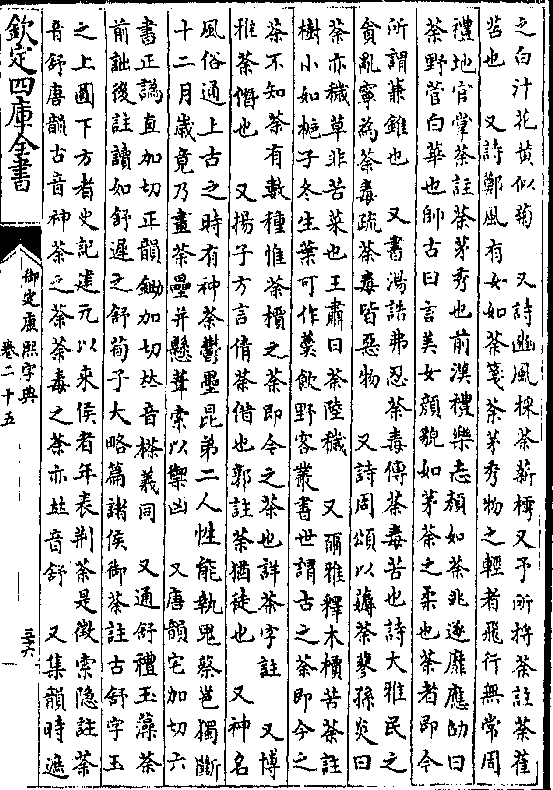 之白汁花黄似菊　又詩豳風採荼薪樗又予所捋荼註荼萑
苕也　又詩鄭風有女如荼箋荼茅秀物之輕者飛行無常周
禮地官掌荼註荼茅秀也前漢禮樂志顔如荼兆逐靡應劭曰
荼野菅白華也師古曰言美女顔貌如茅荼之柔也荼者即今
所謂蒹錐也　又書湯誥弗忍荼毒傳荼毒苦也詩大雅民之
貪亂寧為荼毒疏荼毒皆惡物　又詩周頌以薅荼蓼孫炎曰
荼亦穢草非苦菜也王肅曰荼陸穢　又爾雅釋木檟苦荼註
樹小如梔子冬生葉可作羹飲野客叢書世謂古之荼即今之
茶不知荼有數種惟荼檟之荼即今之茶也詳茶字註　又博
雅荼借也　又揚子方言倩荼借也郭註荼猶徒也　又神名
風俗通上古之時有神荼鬱壘昆弟二人性能執鬼蔡邕獨斷
十二月歲竟乃畫荼壘并懸葦索以禦凶　又唐韻宅加切六
書正譌直加切正韻鋤加切𠀤音槎義同　又通舒禮玉藻荼
前詘後註讀如舒遲之舒荀子大略篇諸侯御荼註古舒字玉
之上圓下方者史記建元以來侯者年表荆荼是徵索隱註荼
音舒唐韻古音神荼之荼荼毒之荼亦𠀤音舒　又集韻時遮
欽定四庫全書
御定康熙字典
卷二十五
三六